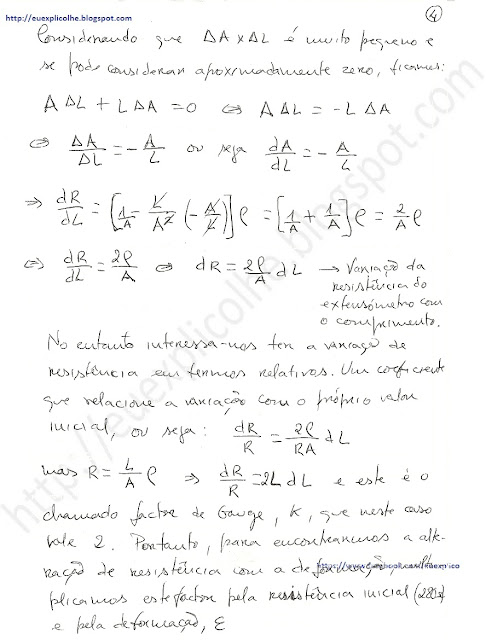 http://euexplicolhe.blogspot.com
4
Considerando que ΔA x ΔL é muito pequeno e
se pode considerar aproximadamente zero, ficamos:
A ΔL + L ΔA = 0 ⇔ A ΔL = -L ΔA
⇔ ΔA/ΔL = - A/L ou seja dA/dL = - A/L
⇒ dR/dL = [1/A - L/A² (-A/L)] ρ = [1/A + 1/A] ρ = 2/A ρ
⇔ dR/dL = 2ρ/A ⇔ dR = 2ρ/A dL → Variação da
resistência do
extensómetro com
o comprimento.
No entanto interessa-nos ter a variação de
resistência em termos relativos. Um coeficiente
que relacione a variação com o próprio valor
inicial, ou seja: dR/R = 2ρ/RA dL
mas R = L/A ρ ⇒ dR/R = 2L dL e este é o
chamado factor de Gauge, K, que neste caso
vale 2. Portanto, para encontrarmos a alte-
ração de resistência com a deformação, multi-
plicamos este factor pela resistência inicial (280Ω)
e pela deformação, ε
http://euexplicolhe.blogspot.com